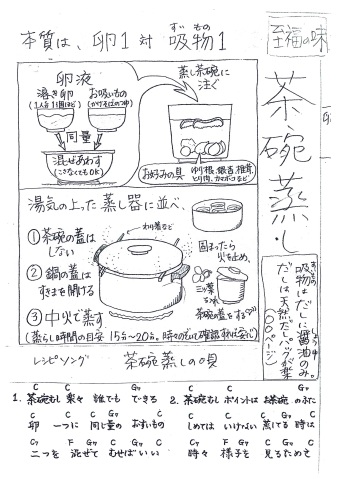 本質は、卵1 対 吸物1
すいもの
至福の味
茶碗蒸し
卵液
溶き卵
(1人分1個ほど)
お吸いもの
(かけそばのつゆ)
同量
混ぜあわす
(こさなくてもOK)
蒸し茶碗に
注ぐ
お好みの具
ゆり根、銀杏、椎茸、
とり肉、カマボコなど
湯気の上った蒸し器に並べ、
わり箸など
①茶碗の蓋は
しない
②鍋の蓋は
すきまを開ける
③中火で蒸す
(蒸らし時間の目安 15分〜20分。時々のぞいて確認すれば安心)
固まったら
火を止め、
三ッ葉
茶碗の蓋をする
吸物はだしに醤油のみ。
だしは天然だしパックが楽
レシピソング
茶碗蒸しの唄
C C G7
1. 茶碗むし 楽々 誰でも できる
C C G7 C
卵 一つに 同じ量の おすいもの
C7 F G7 C
二つを 混ぜて むせばいい
C C G7
2. 茶碗むし ポイントは お茶碗 のふた
C C G7 C
しめては いけない 蒸してる 時は
C7 F G7 C
時々 様子を 見るためさ